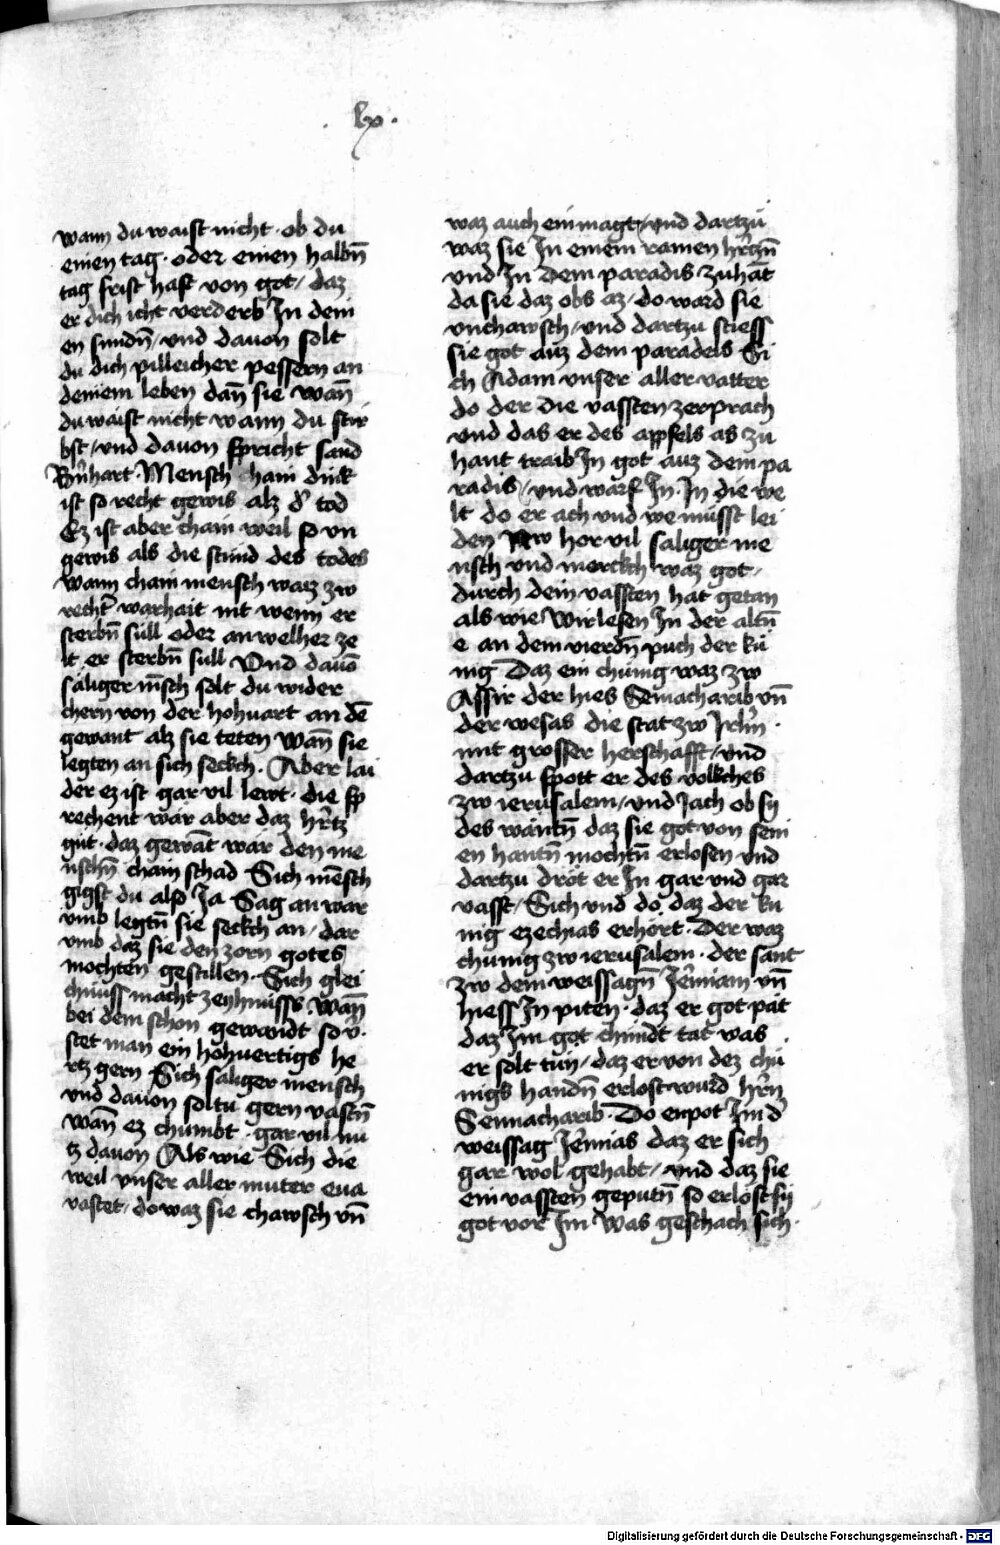 . lx .
wann du waist nicht · ob du
einen tag · oder einen halbn̄
tag frist hast von got / daz
er dich icht verderb In dein
en sundn̄ / vnd dauon solt
du dich pilleicher pessern an
deinem leben dan̄ sie wan̄
du waist nicht wann du stir
bst / vnd dauon spricht sand
Bn̄hart · Mensch chain dink
ist so recht gewis alz d' tod
Ez ist aber chain weil so vn
gewis als die stund des todes
wann chain mensch waiz zw
recht' warhait nit wenn er
sterbn̄ sull oder an welher ze
it er sterbn̄ sull Vnd dauō
saliger mēsch solt du wider
chern von der hohuart an dē
gewant alz sie teten wan̄ sie
legten an sich seckch · Aber lai
der ez ist gar vil lewt · die sp
rechent wär aber daz hr̄tz
gut · daz gewāt war den me
nschn̄ chain schad Sich mēsch
gigst du also Ja Sag an war
vmb legtn̄ sie seckch an / dar
vmb daz sie den zorn gotes
mochten gestillen · Sich glei
chnuss macht zeyhnuss · wan̄
bei dem schon gewandt so v'
stet man ein hohuertigs he
rtz gern Sich saliger mensch
vnd dauon soltu gern vastn̄
wan̄ ez chumbt · gar vil nu
tz dauon Als wie Sich die
weil vnser aller muter eua
vastet / do waz sie chawsch vn̄
waz auch ein magt / vnd dartzu
waz sie In einem rainen hr̄tzn̄
vnd In dem paradis zuhāt
da sie daz obs az / do ward sie
vnchawsch / vnd dartzu stiess
sie got auz dem paradeis Si
ch Adam vnser aller vatter
do der die vassten zerprach
vnd das er des appfels as zu
hant traib In got auz dem pa
radis / vnd warf In · In die we
lt do er ach vnd we musst lei
den Nw hor vil saliger me
nsch vnd merckch waz got /
durch dein vassten hat getan
als wie Wir lesen In der altn̄
e an dem vierdn̄ puch der kü
nig Daz ein chunig waz zw
Assir der hies Sennacharib vn̄
der wesas die stat zw Jrlm̄ ·
mit grosser herschafft / vnd
dartzu spott er des volkches
zw ierusalem / vnd Jach ob sy
des wantn̄ daz sie got von sein
en hantn̄ mochtn̄ erlosen vnd
dartzu dröt er In gar vnd gar
vasst / Sich vnd do daz der kü
nig ezechias erhört · Der waz
chunig zw ierusalem · der sant
zw dem weissagn̄ Jer̄miam vn̄
hiess In piten · daz er got pät
daz Im got chundt tät was
er solt tun / daz er von dez chu
nigs handn̄ erlost wurd hr̄n
Sennacharib · Do enpot Im d'
weissag Jer̄mias daz er sich
gar wol gehabt / vnd daz sie
ein vassten geputn̄ so erlost sy
got vor Im Was geschach sich ·
Digitalisierung gefördert durch die Deutsche Forschungsgemeinschaft - DFG